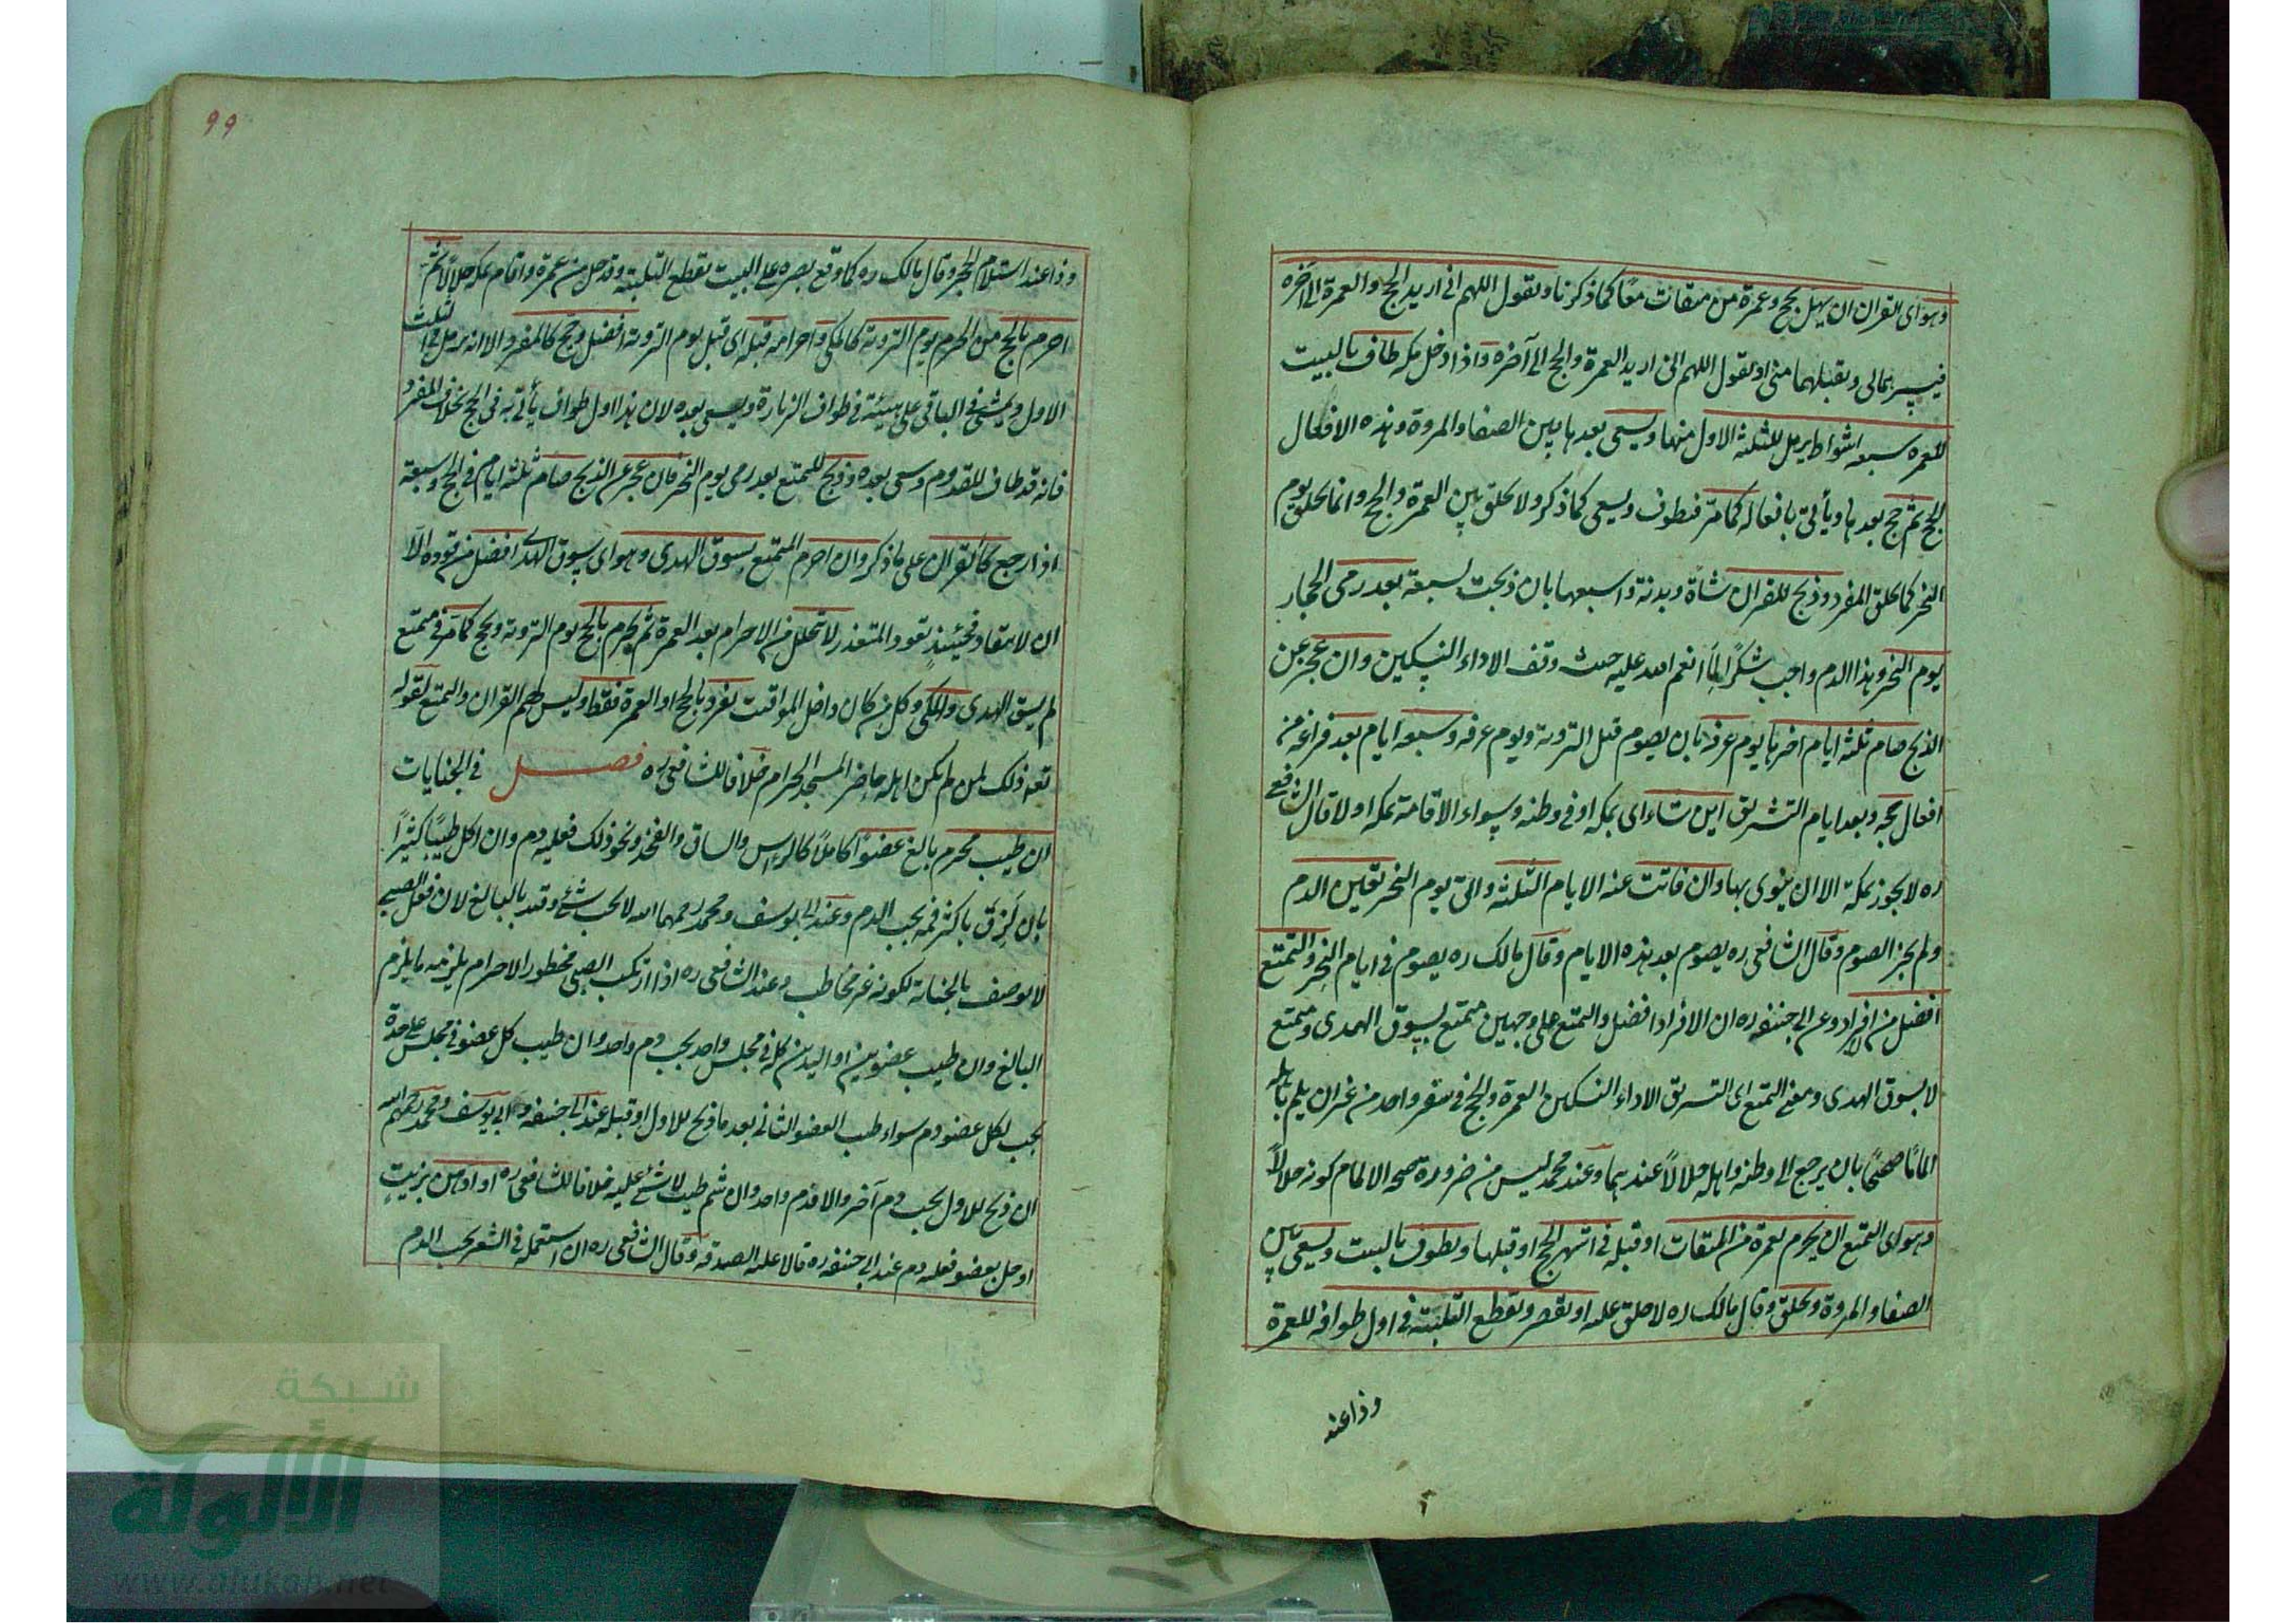 وهو اى القران ان يهل بحج وعمرة من ميقات معًا كما ذكرنا ويقول اللهم انى اريد الحج والعمرة الى آخره
فيسرهما لى وتقبلهما منى او يقول اللهم انى اريد العمرة والحج الى آخره واذا دخل مكه طاف بالبيت
للعمره سبعه اشواط يرمل للثلثه الاول منها ويسعى بعدها بين الصفا والمروة وهذه الافعال
ثم حج بعدها ويأتى بافعاله كما مرّ فيطوف ويسعى كما ذكر ولا يحلق بين العمرة والحج وانما يحلق يوم
النحر كما يحلق المفرد وذبح للقران شاة وبدنة واسبعها بان ذبحت لسبعة بعد رمى الجمار
يوم النحر وهذا الدم واجب شكرًا لما انعم الله عليه حيث وفف الاداء النسكين وان عجز عن
الذبح صام ثلثة ايام اخرها يوم عرفه بان يصوم قبل التروية ويوم عرفه وسبعه ايام بعد فراغه من
افعال حجه وبعد ايام التشريق اين شاء اى بمكه او فى وطنه وسواء الاقامة بمكه او لا قال الشافعى
ره لا يجوز بمكة الا ان ينوى بها وان فاتت عنه الايام الثلثه واتى يوم النحر تعين الدم
ولم يجز الصوم وقال الشافعى ره يصوم بعد هذه الايام وقال مالك ره يصوم فى ايام النحر والتمتع
افضل من افراد وعن ابى حنيفه ره ان الافراد افضل والتمتع على وجهين متمتع يسوق الهدى ومتمتع
لا يسوق الهدى ومعنى التمتع اى الترفق الاداء النسكين العمرة والحج فى سفر واحد من غير ان يلم باهله
المامًا صحيحًا بان يرجع الى وطنه واهله حلالًا عندهما وعند محمد ليس من ضروره صحه الالمام كونه حلالًا
وهو اى التمتع ان يحرم لعمرة من الميقات او قبله فى اشهر الحج او قبلها ويطوف بالبيت ويسعى بين
الصفا والمروة ويحلق وقال مالك ره لا حلق عليه او يقصر ويقطع التلبية فى اول طوافه للعمرة
وذا عند
٩٩
وذا عند استلام الحجر وقال مالك ره كما وقع بصره على البيت يقطع التلبية وقد حل من عمرة واقام بمكه حلالًا ثم
احرم بالحج من الحرم يوم التروية كالمكى واحرامه قبله اى قبل يوم التروية افضل وحج كالمفرد الا انه يرمل فى الثلث
الاول ويمشى فى الباقى على هيئة فى طواف الزيارة ويسعى بعده لان هذا اول طواف يأتى به فى الحج بخلاف المفرد
فانه قد طاف للقدوم وسعى بعده وذبح للتمتع بعد رمى يوم النحر فان عجز عن الذبح صام ثلثه ايام فى الحج وسبعة
اذا رجع كالقران على ما ذكر وان احرم المتمتع يسوق الهدى وهو اى سوق الهدى افضل من قوده الا
ان لا ينقاد فحينئذٍ تقود والمتعذر لا تحلل من الاحرام بعد العمرة ثم يحرم بالحج يوم التروية ويحج كما مر فى متمتع
لم يسق الهدى والمكى وكل من كان داخل المواقيت يفرد بالحج او العمرة فقط وليس لهم القران والتمتع لقوله
تعه ذلك لمن لم يكن اهله حاضر المسجد الحرام خلافا للشافعى ره فصل فى الجنايات
ان طيب محرم بالغ عضوًا كاملًا كالراس والساق والفخذ ونحو ذلك فعليه دم وان اكل طيبًا كثيرًا
بان لزق باكثر فمه يجب الدم وعند ابى يوسف ومحمد رحمهما الله لا يجب شئ وقيد بالبالغ لان فعل الصبى
لا يوصف بالجناية لكونه غير مخاطب وعند الشافعى ره اذا ارتكب الصبى محظور الاحرام يلزمه ما يلزم
البالغ وان طيب عضوين او اليدين كله فى مجلس واحد يجب دم واحد وان طيب كل عضو فى مجلس على حدة
يجب لكل عضو دم سواء طيب العضو الثانى بعد ما ذبح للاول او قبله عند ابى حنيفه وابى يوسف ومحمد رحمهم الله
ان ذبح للاول يجب دم آخر والا فدم واحد وان شم طيب لا شئ عليه خلافا للشافعى ره او ادهن بزيتٍ
او حل بعضو فعليه دم عند ابى حنيفه ره قالا عليه الصدقه وقال الشافعى ره ان استعمله فى الشعر يجب الدم
شبكة
الألوكة
www.alukah.net